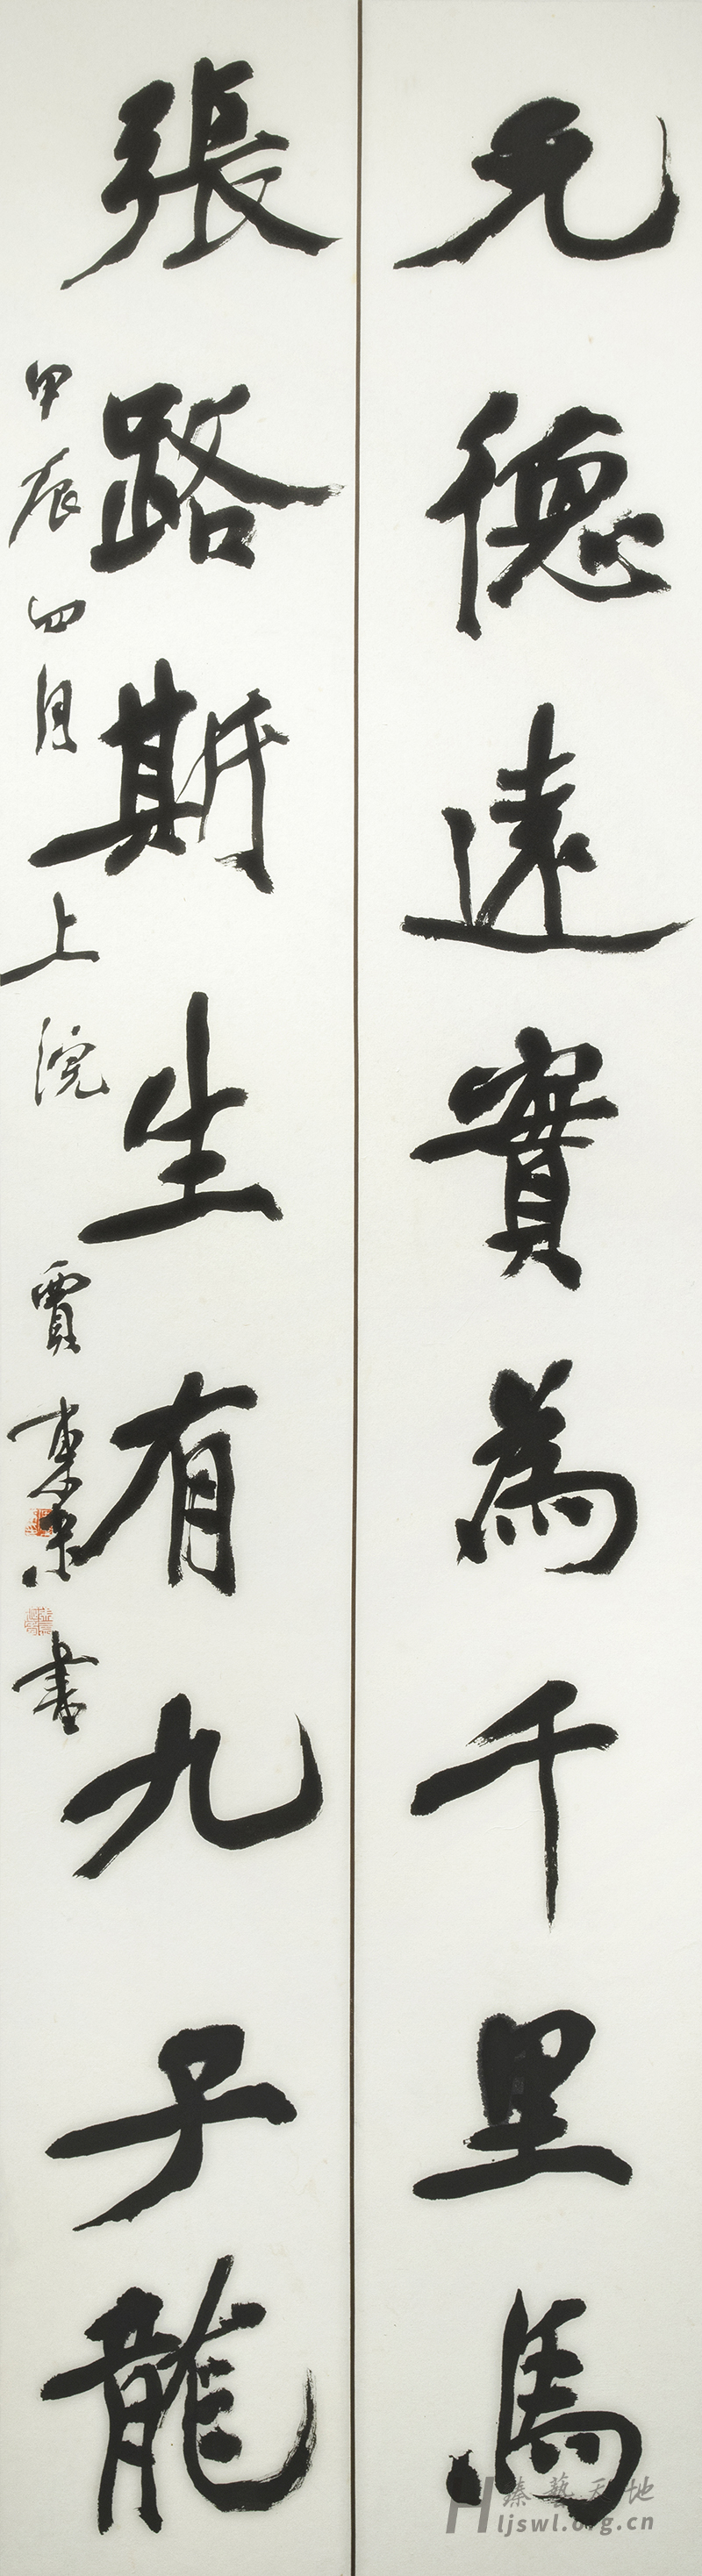 元德遠實為千里馬
張路斯生有九子龍
甲辰四月上浣
賈東京書
臻藝天地
ljswl.org.cn